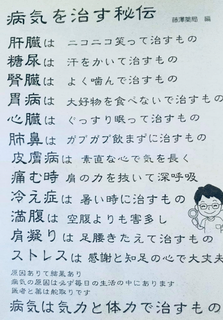 病気を治す秘伝
藤澤薬局 編
肝臓は ニコニコ笑って治すもの
糖尿は 汗をかいて治すもの
腎臓は よく噛んで治すもの
胃病は 大好物を食べないで治すもの
心臓は ぐっすり眠って治すもの
肺鼻は ガブガブ飲まずに治すもの
皮膚病は 素直な心で気を長く
痛む時は 肩の力を抜いて深呼吸
冷え症は 暑い時に治すもの
満腹は 空腹よりも害多し
肩凝りは 足腰きたえて治すもの
ストレスは 感謝と知足の心で大丈夫
原因ありて結果あり
病気の原因は必ず毎日の生活の中にあります
医者と薬は舵取りです
病気は気力と体力で治すもの